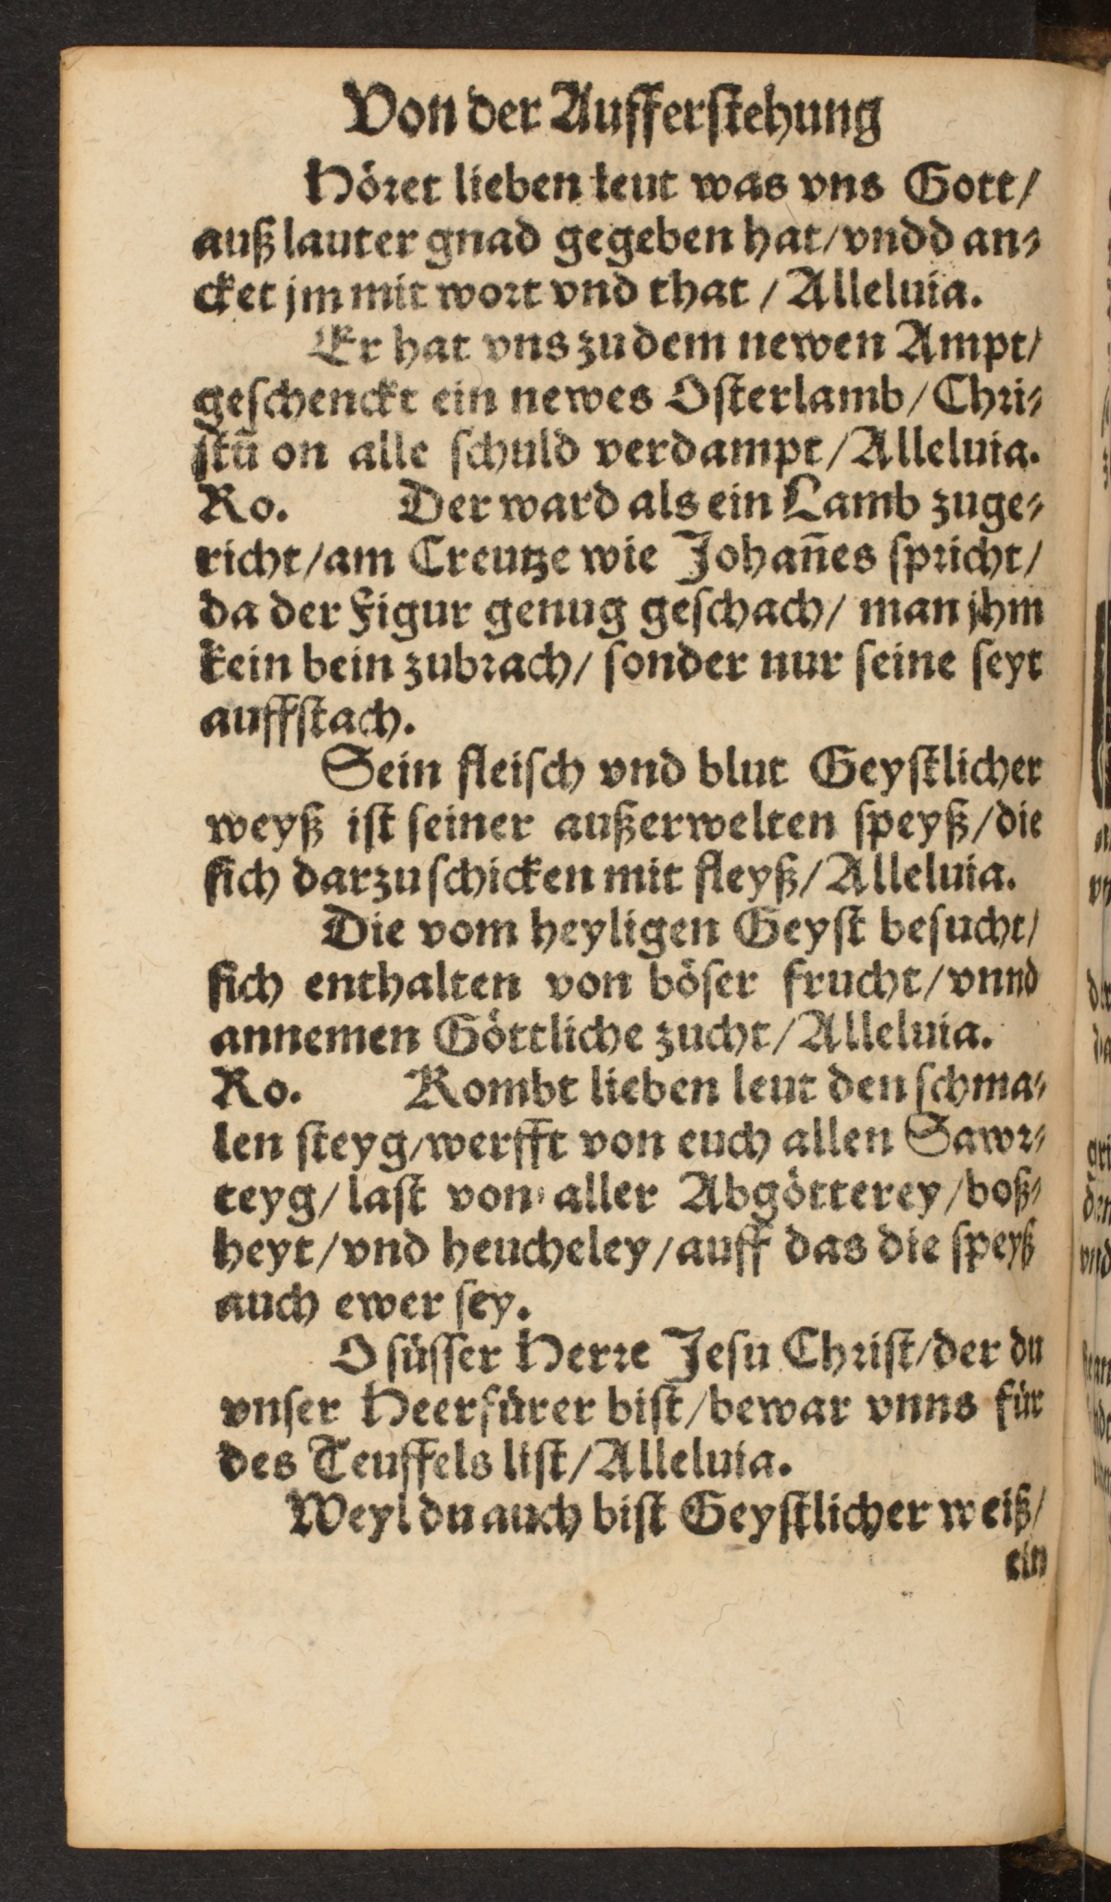 Von der Aufferſtehung
Höꝛet lieben leut was vns Gott/
auß lauter gnad gegeben hat/vndd an⸗
cket jm mit woꝛt vnd that/Alleluia.
Er hat vns zu dem newen Ampt/
geſchenckt ein newes Oſterlamb/Chꝛi⸗
ſtū on alle ſchuld verdampt/Alleluia.
Ro. Der ward als ein Lamb zuge⸗
richt/am Creutze wie Johan̄es ſpꝛicht/
da der Figur genug geſchach/ man jhm
kein bein zubꝛach/ ſonder nur ſeine ſeyt
auffſtach.
Sein fleiſch vnd blut Geyſtlicher
weyß iſt ſeiner außerwelten ſpeyß/die
ſich darzu ſchicken mit fleyß/Alleluia.
Die vom heyligen Geyſt beſucht/
ſich enthalten von böſer frucht/vnnd
annemen Göttliche zucht/Alleluia.
Ro. Kombt lieben leut den ſchma⸗
len ſteyg/werfft von euch allen Sawꝛ⸗
teyg/laſt von aller Abgötterey/boß⸗
heyt/vnd heucheley/auff das die ſpeyß
auch ewer ſey.
O ſüſſer Herꝛe Jeſu Chꝛiſt/der du
vnſer Heerfürer biſt/bewar vnns für
des Teuffels liſt/Alleluia.
Weyl du auch biſt Geyſtlicher weiß/
ein